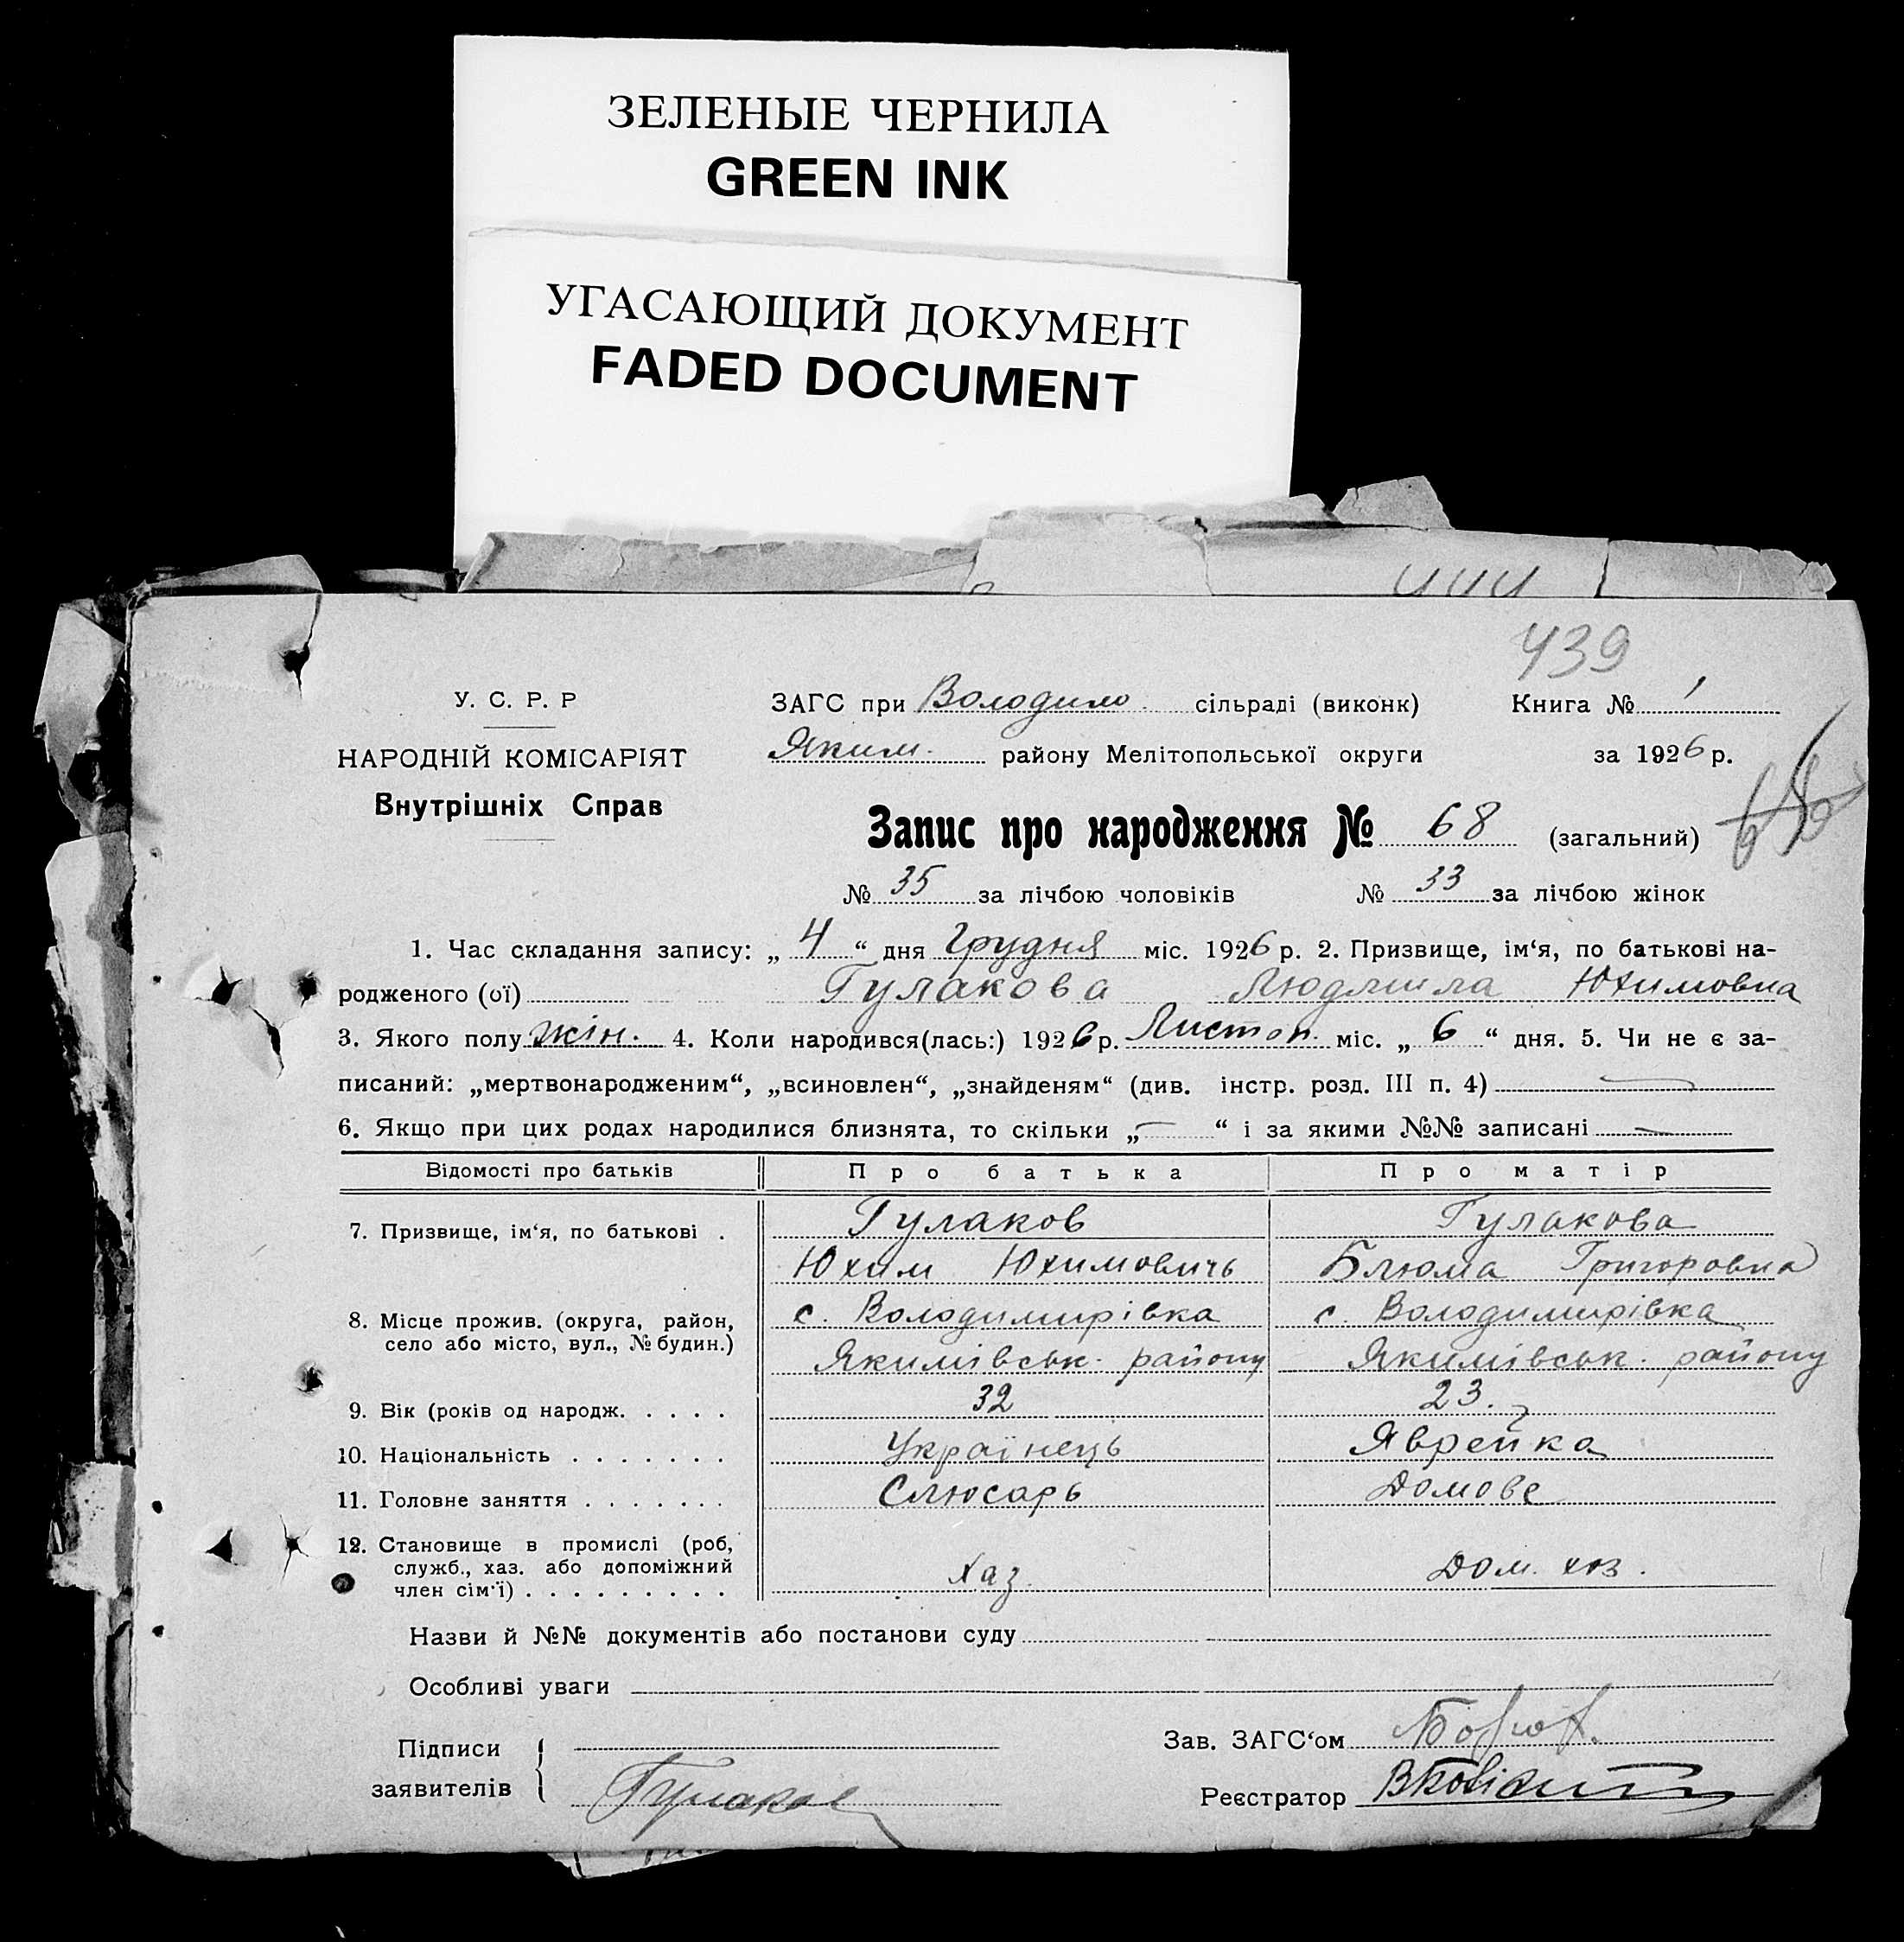 ЗЕЛЕНЫЕ ЧЕРНИЛА
GREEN INK
УГАСАЮЩИЙ ДОКУМЕНТ
FADED DOCUMENT
439
У. С. Р. Р
НАРОДНІЙ КОМІСАРІЯТ
Внутрішніх Справ
ЗАГС при Володимо. сільраді (виконк) Книга № 1
Яким. району Мелітопольської округи за 1926 р.
Запис про народження № 68 (загальний)
№ 35 за лічбою чоловіків № 33 за лічбою жінок
1. Час складання запису: „ 4 “ дня Грудня міс. 1926 р. 2. Призвище, ім‘я, по батькові на-
родженого (ої) Гулакова Людмила Юхимовна
3. Якого полу жін. 4. Коли народився(лась:) 1926 р. Листоп. міс. „ 6 “ дня. 5. Чи не є за-
писаний: „мертвонародженим“, „всиновлен“, „знайденям“ (див. інстр. розд. III п. 4) —
6. Якщо при цих родах народилися близнята, то скільки „ — “ і за якими №№ записані —
Відомості про батьків Про батька Про матір
7. Призвище, ім‘я, по батькові . Гулаков Гулакова
Юхим Юхимовичь Блюма Григоровна
8. Місце прожив. (округа, район, село або місто, вул., № будин.) с. Володимирівка с. Володимирівка
Якимівськ. району Якимівськ. району
9. Вік (років од народж. . . . . 32 23.
10. Національність . . . . . . . Українець Яврейка
11. Головне заняття . . . . . . . Слюсарь Домове
12. Становище в промислі (роб,
служб., хаз. або допоміжний
член сім‘ї) . . . . . . . . . Хаз. Дом. хоз.
Назви й №№ документів або постанови суду
Особливі уваги
Підписи
заявителів Гулаков
Зав. ЗАГС‘ом
Реєстратор